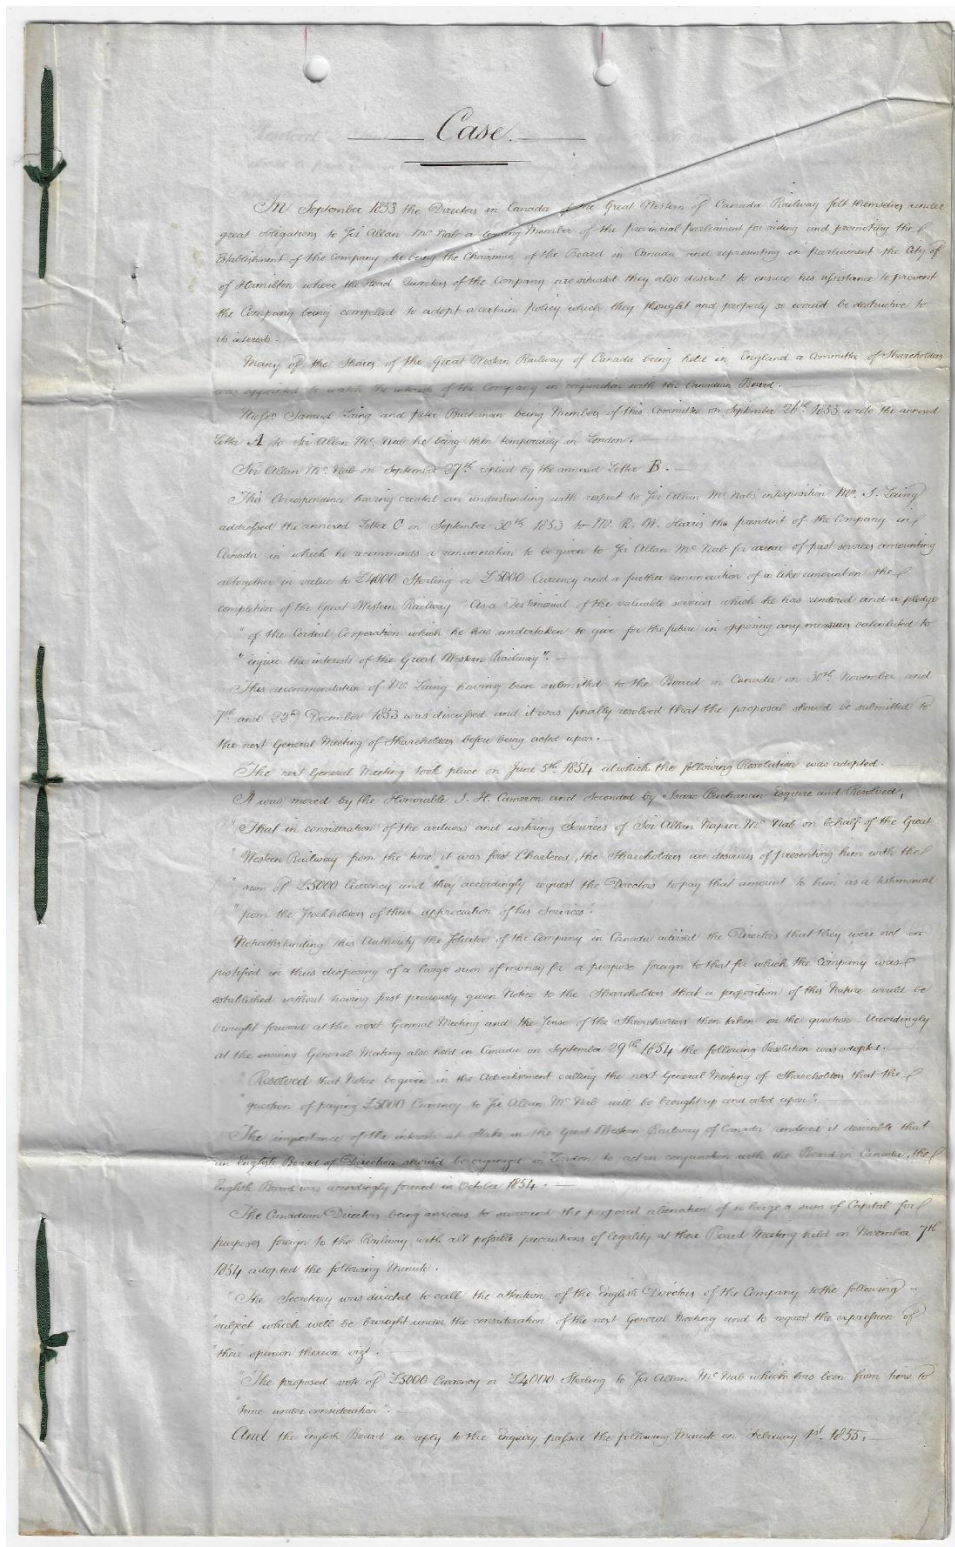 Case.
In September 1853 the Directors in Canada of the Great Western of Canada Railway felt themselves under
great obligations to Sir Allan Mc Nab a leading Member of the provincial parliament for aiding and promoting the
Establishment of the Company, he being the Chairman of the Board in Canada and representing in parliament the City of
of Hamilton where the Head Quarters of the Company are situated they also desired to ensure his assistance to prevent
the Company being compelled to adopt a certain Policy which they thought and properly so would be destructive to
its interests.
Many of the Shares of the Great Western Railway of Canada being held in England a Committee of Shareholders
was appointed to watch the interests of the Company in conjunction with the Canadian Board.
Messrs Samuel Laing and peter Buchanan being Members of this Committee on September 26th 1853 wrote the annexed
Letter A to Sir Allan Mc. Nab he being then temporarily in London.
Sir Allan Mc. Nab on September 27th replied by the annexed Letter B.
This Correspondence having created an understanding with respect to Sir Allan Mc Nab's interposition Mr. S. Laing
addressed the annexed Letter C on September 30th 1853 to Mr. R. W. Harris the president of the Company in
Canada in which he recommends a remuneration to be given to Sir Allan Mc Nab for arrear of past services amounting
altogether in value to £4000 Sterling or £5000 Currency and a further remuneration of a like amount on the
completion of the Great Western Railway "As a Testimonial of the valuable services which he has rendered and a pledge
"of the Cordial Cooperation which he has undertaken to give for the future in opposing any measures calculated to
"injure the interests of the Great Western Railway".
This recommendation of Mr. Laing having been submitted to the Board in Canada on 30th November and
7th and 23rd December 1853 was discussed and it was finally resolved that the proposal should be submitted to
the next General Meeting of Shareholders before being acted upon.
The next General Meeting took place on June 5th 1854 at which the following Resolution was adopted.
It was moved by the Honorable J. H. Cameron and Seconded by Isaac Buchanan Esquire and Resolved,
"That in consideration of the arduous and untiring Services of Sir Allan Napier Mc Nab on behalf of the Great
"Western Railway from the time it was first Chartered, the Shareholders are desirous of presenting him with the
"sum of £5000 Currency and they accordingly request the Directors to pay that amount to him as a testimonial
"from the Stockholders of their appreciation of his Services".
Notwithstanding this Authority the Solicitor of the Company in Canada advised the Directors that they were not
justified in thus disposing of a large sum of money for a purpose foreign to that for which the Company was
established without having first previously given Notice to the Shareholders that a proposition of this Nature would be
brought forward at the next General Meeting and the Sense of the Shareholders then taken on the question. Accordingly
at the ensuing General Meeting also held in Canada on September 29th 1854 the following Resolution was adopted.
"Resolved that Notice be given in the Advertisement calling the next General Meeting of Shareholders that the
"question of paying £5000 Currency to Sir Allan Mc Nab will be brought up and acted upon".
The importance of the interests at Stake in the Great Western Railway of Canada rendered it desirable that
an English Board of Direction should be organized in London to act in conjunction with the Board in Canada, the
English Board was accordingly formed in October 1854.
The Canadian Directors being anxious to surround the proposed alienation of so large a sum of Capital for
purposes foreign to the Railway with all possible precautions of legality at their Board Meeting held on November 7th
1854 adopted the following Minute.
"The Secretary was directed to call the attention of the English Directors of the Company to the following
"subject which will be brought under the consideration of the next General Meeting and to request the expression of
"their opinion thereon vizt.
"The proposed vote of £5000 Currency or £4000 Sterling to Sir Allan Mc Nab which has been from time to
"time under consideration".
And the English Board in reply to the inquiry passed the following Minute on February 1st. 1855.